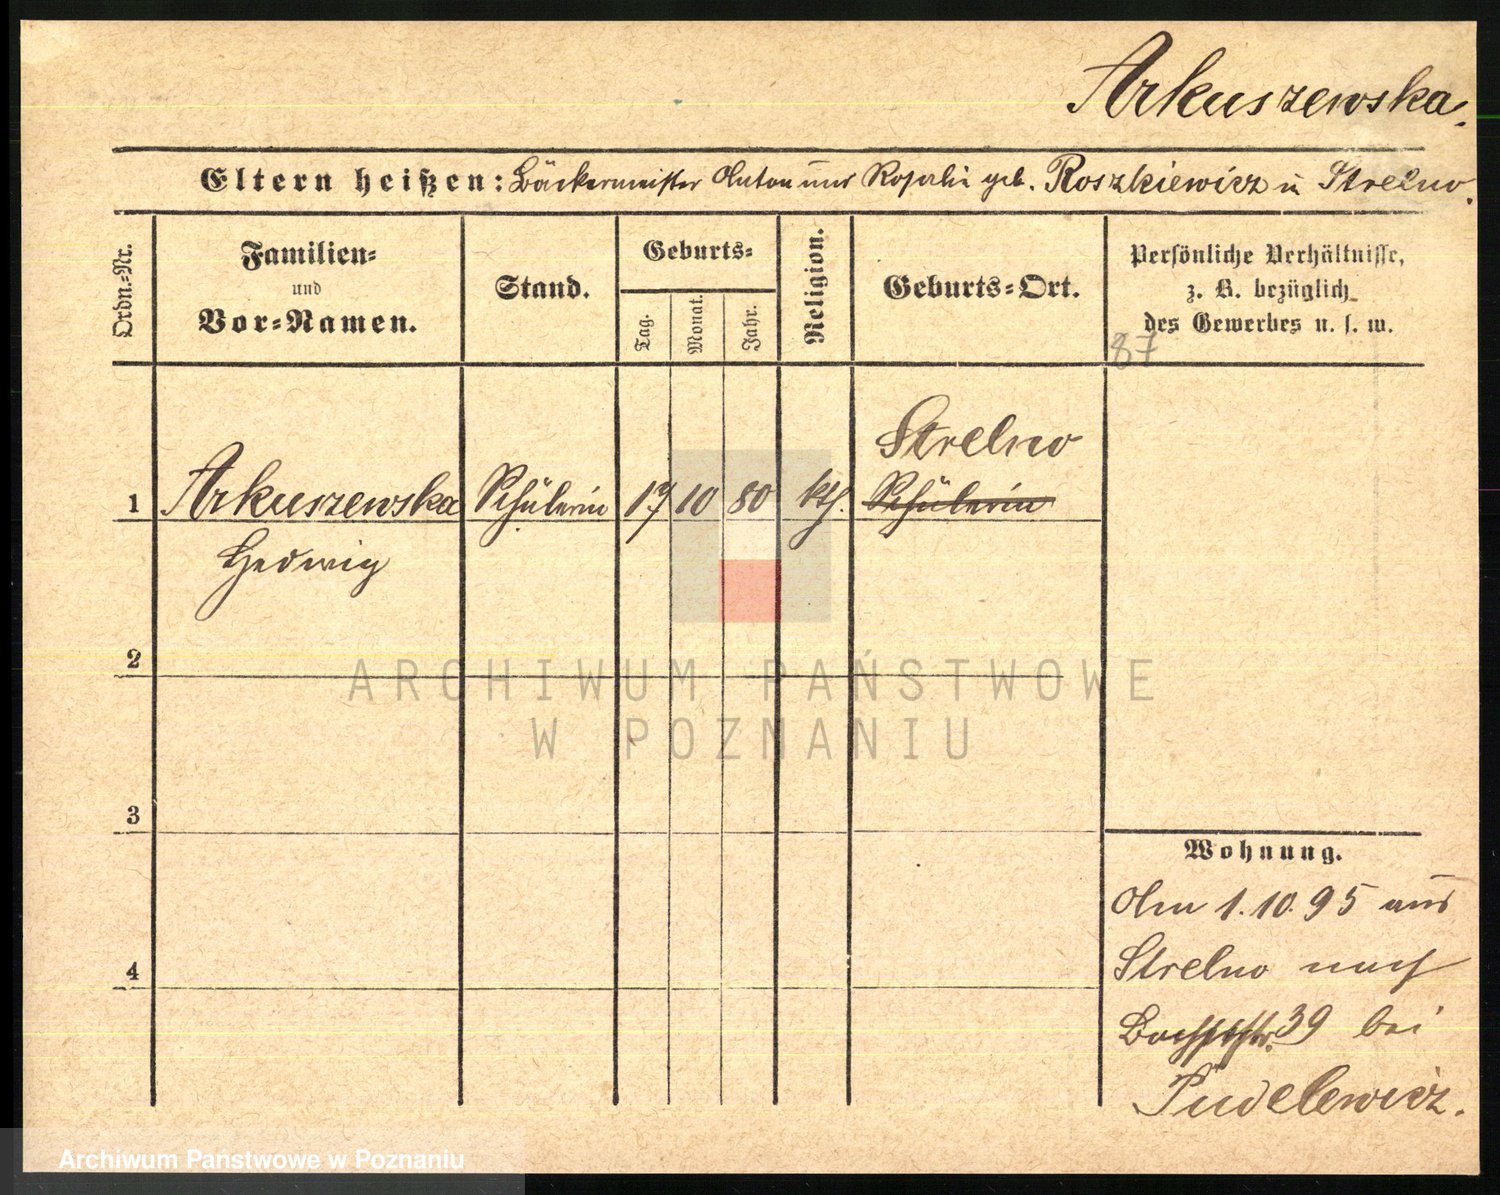 Arkuszewska.
Eltern heißen: Bäckermeister Anton und Rosalie geb. Roszkiewicz u Strelno.
Ordn.-Nr.
Familien-
und
Vor-Namen.
Stand.
Geburts-
Tag.
Monat.
Jahr.
Religion.
Geburts-Ort.
Persönliche Verhältnisse,
z. B. bezüglich
des Gewerbes u. s. w.
87
Strelno
1 Arkuszewska Schülerin 17 10 80 kth. Schülerin
Hedwig
2
3
4
Wohnung.
Am 1.10.95 aus
Strelno nach
39 bei
Pudelewicz.
ARCHIWUM PAŃSTWOWE
W POZNANIU
Archiwum Państwowe w Poznaniu